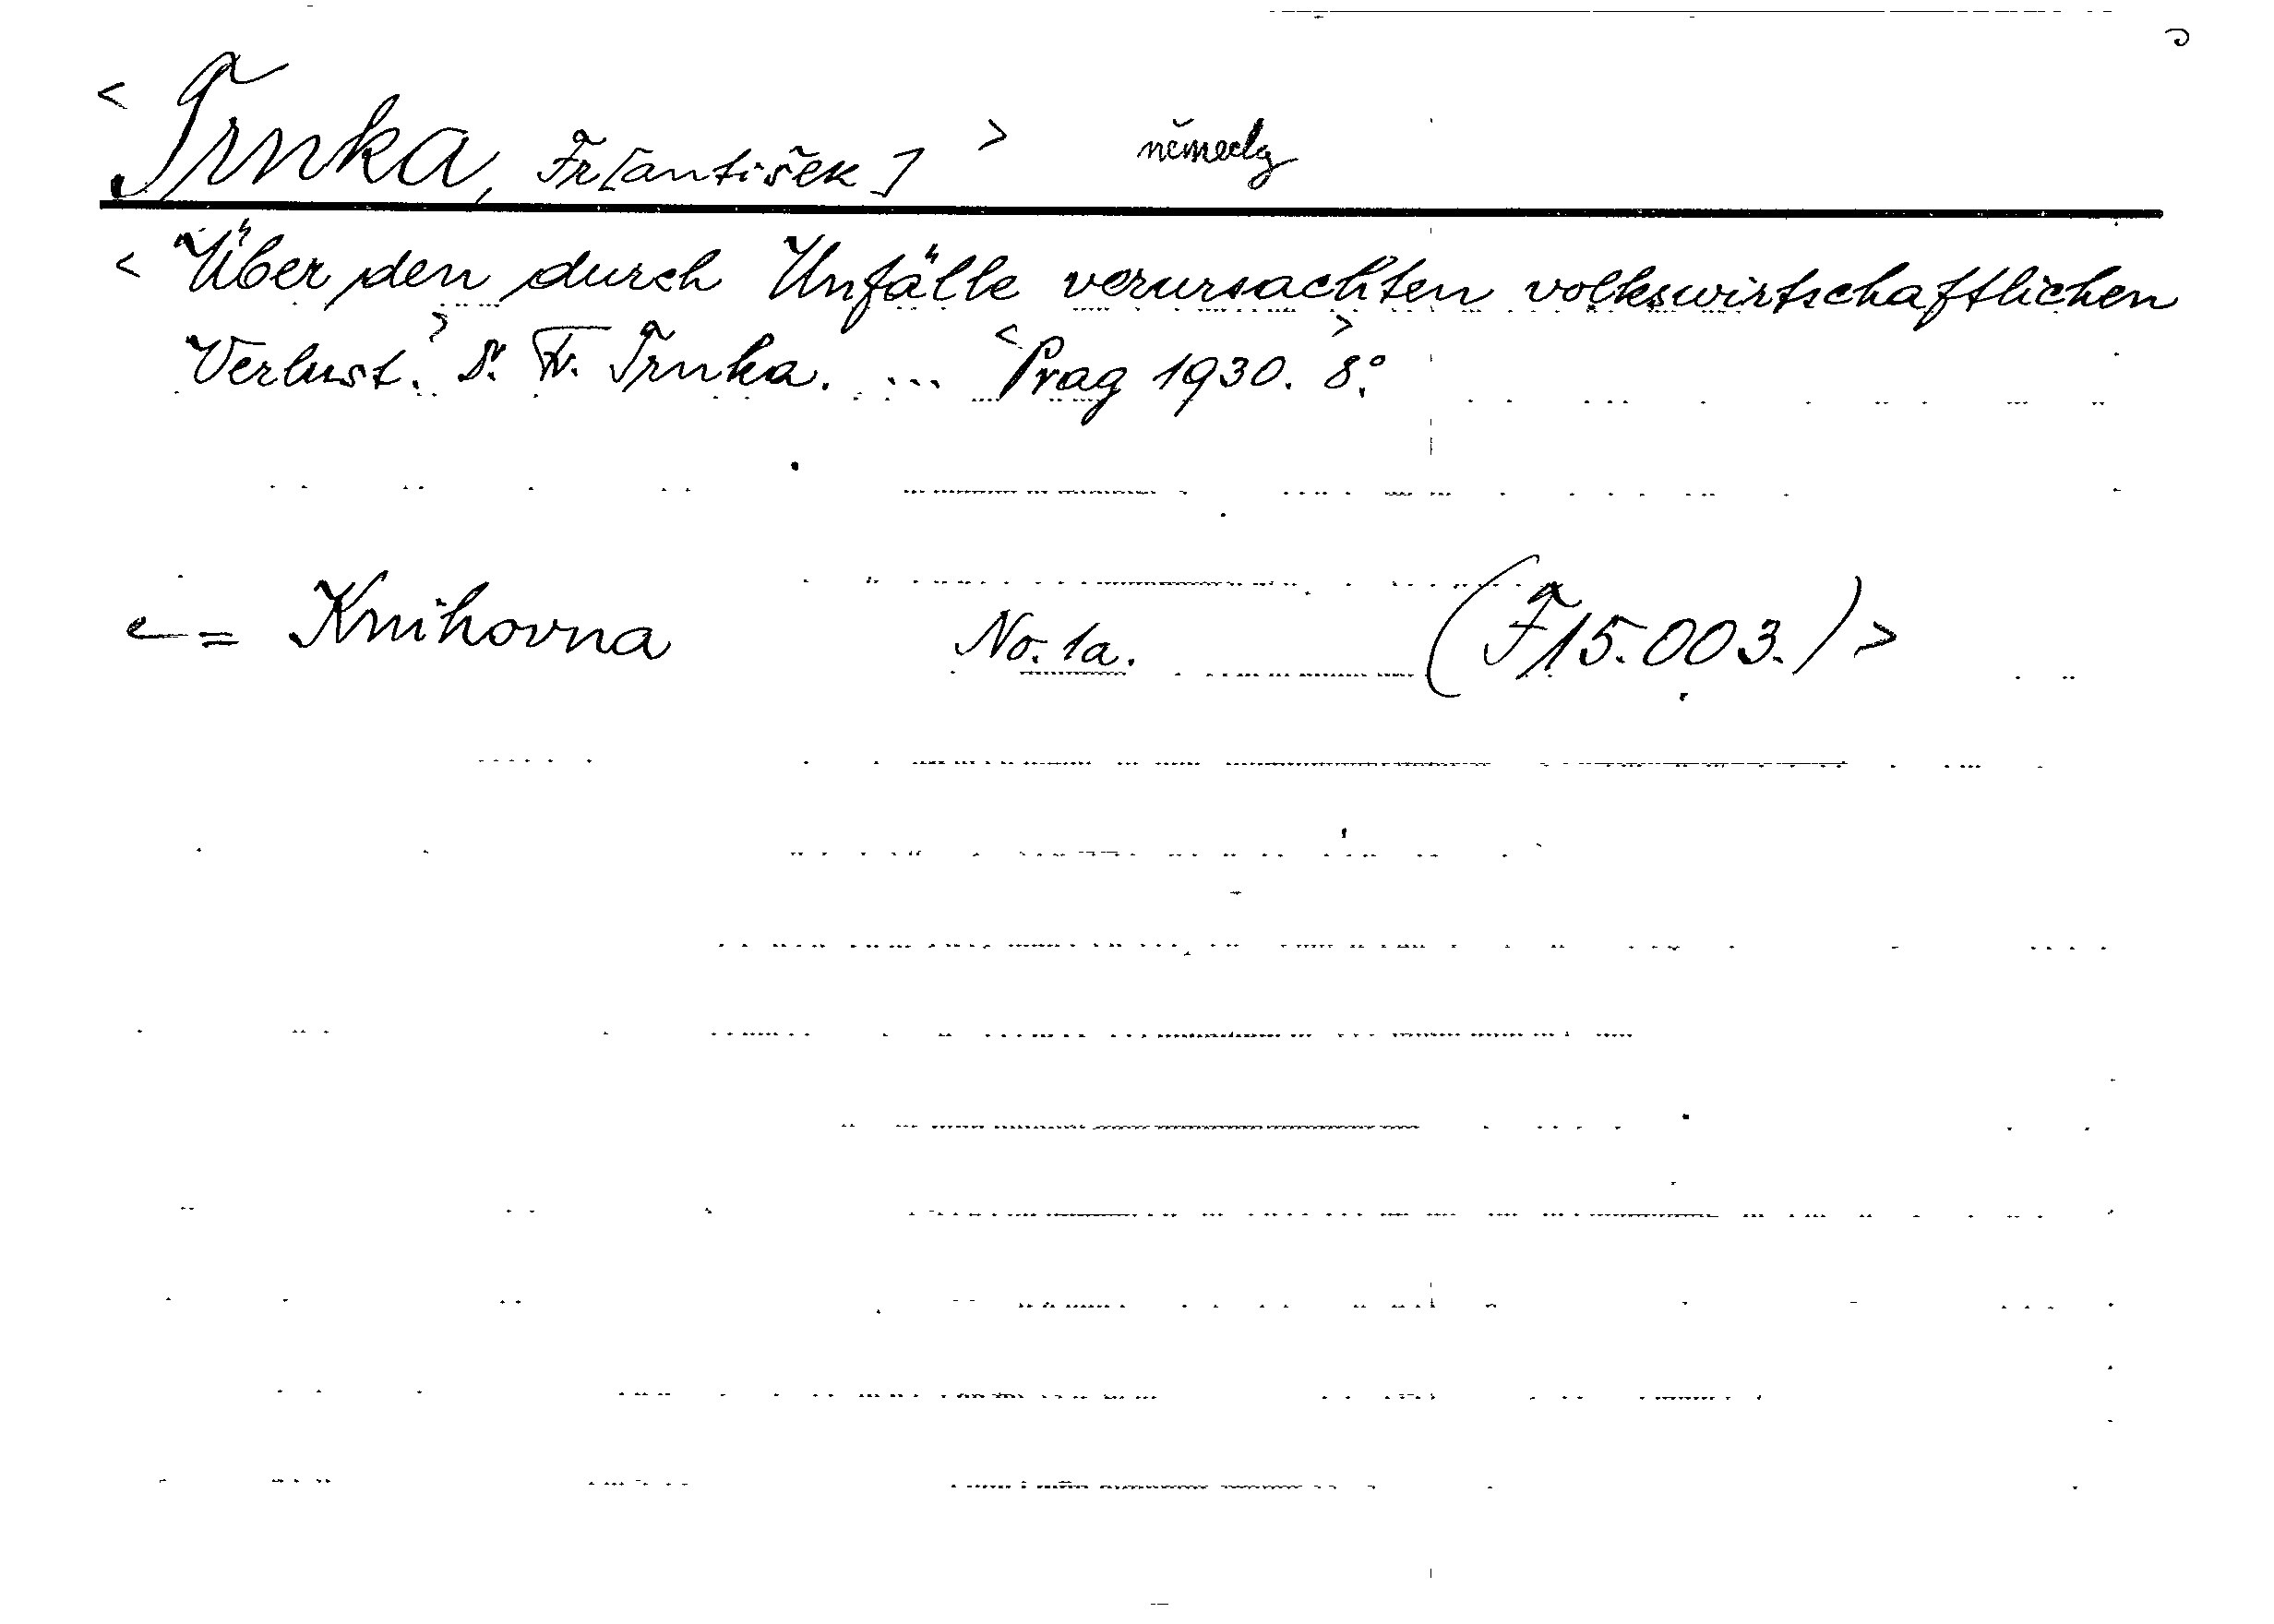 < Trnka, Fr[antišek] > německy
< Über den durch Unfälle verursachten volkswirtschaftlichen
Verlust.> Dr. Fr. Trnka. ... <Prag 1930.> 8°.
<— = Knihovna No. 1a. (F 15.003.) >